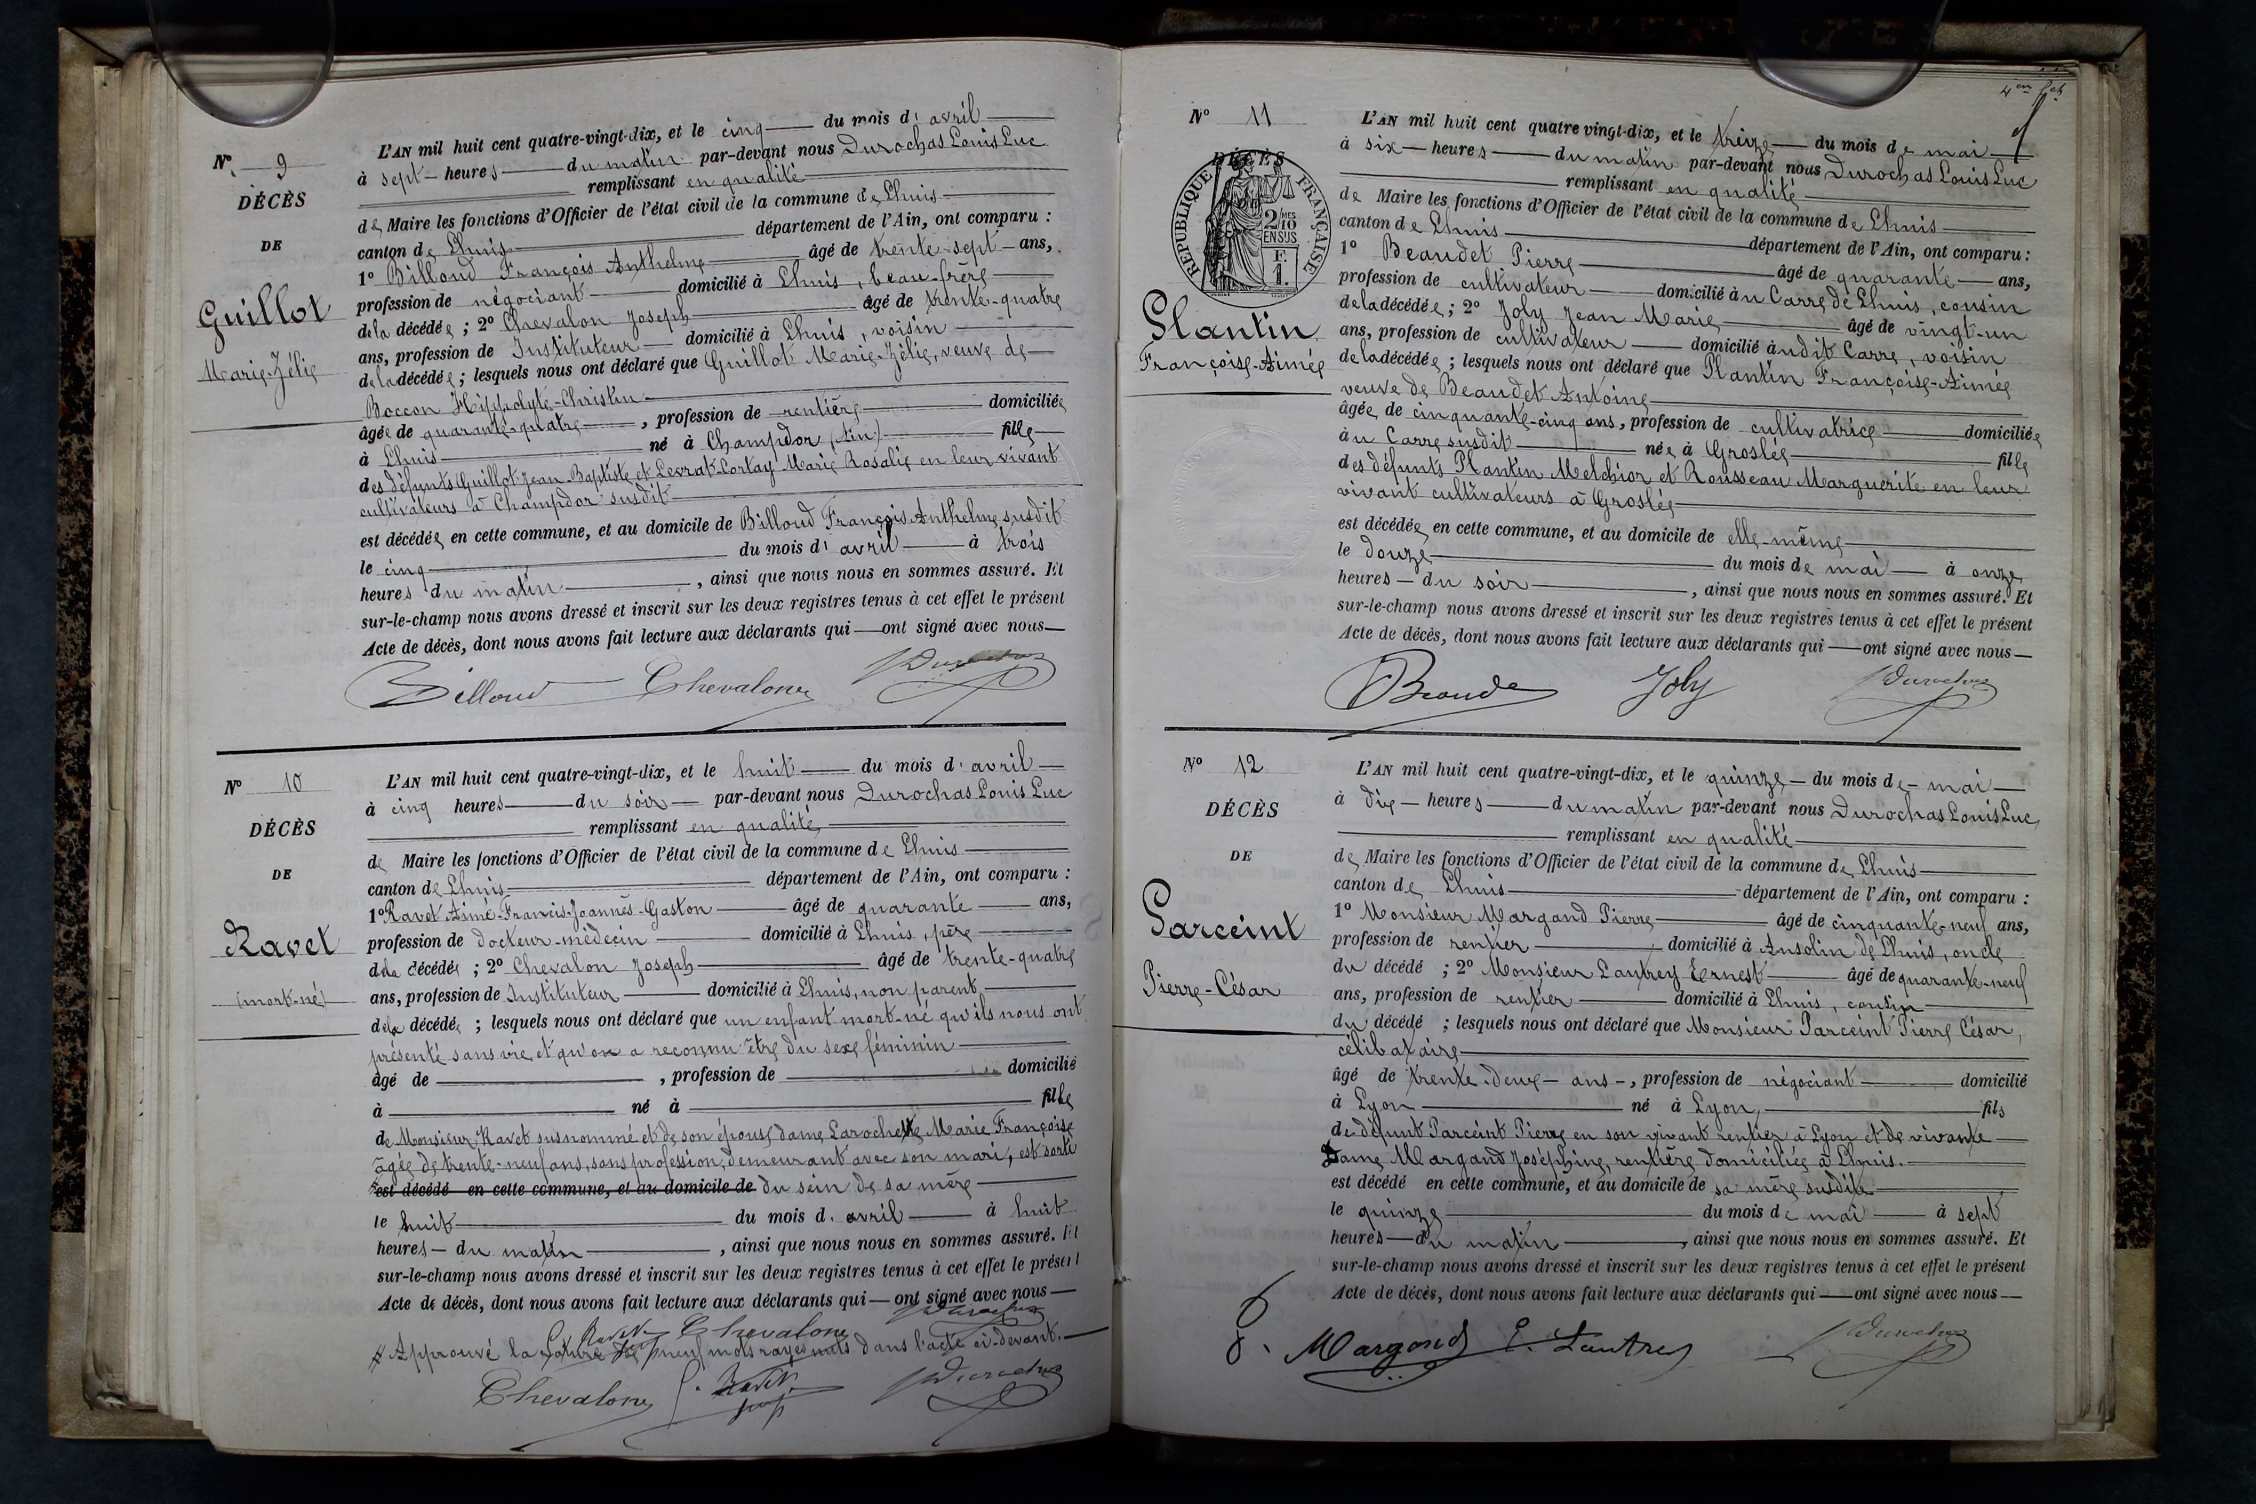 Nº 9
DÉCÈS
DE
Guillot
Marie-Zélie
L'AN mil huit cent quatre-vingt-dix, et le cinq du mois d'avril
à sept heures du matin par-devant nous Durochas Louis Luc
remplissant en qualité
de Maire les fonctions d'Officier de l'état civil de la commune de Lhuis
canton de Lhuis département de l'Ain, ont comparu :
1º Billoud François Anthelme âgé de trente-sept ans,
profession de négociant domicilié à Lhuis, beau-frère
de la décédée ; 2º Chevalon Joseph âgé de trente-quatre
ans, profession de Instituteur domicilié à Lhuis, voisin
de la décédée ; lesquels nous ont déclaré que Guillot Marie-Zélie, veuve de
Boccon Hippolyte-Christin
âgée de quarante-quatre, profession de rentière domiciliée
à Lhuis né à Champdor (Ain) fille
des défunts Guillot Jean-Baptiste et Levrat-Cortay Marie Rosalie en leur vivant
cultivateurs à Champdor susdit
est décédée en cette commune, et au domicile de Billoud François Anthelme susdit
le cinq du mois d'avril à trois
heures du matin, ainsi que nous nous en sommes assuré. Et
sur-le-champ nous avons dressé et inscrit sur les deux registres tenus à cet effet le présent
Acte de décès, dont nous avons fait lecture aux déclarants qui ont signé avec nous
Billoud Chevalon Durochas
Nº 10
DÉCÈS
DE
Ravet
(mort-né)
L'AN mil huit cent quatre-vingt-dix, et le huit du mois d'avril
à cinq heures du soir par-devant nous Durochas Louis Luc
remplissant en qualité
de Maire les fonctions d'Officier de l'état civil de la commune de Lhuis
canton de Lhuis département de l'Ain, ont comparu :
1º Ravet Aimé-Francis-Joannès-Gaston âgé de quarante ans,
profession de docteur-médecin domicilié à Lhuis, père
de la décédée ; 2º Chevalon Joseph âgé de trente-quatre
ans, profession de Instituteur domicilié à Lhuis, non parent
de la décédée ; lesquels nous ont déclaré que un enfant mort-né qu'ils nous ont
présenté sans vie et qu'on a reconnu être du sexe féminin
âgé de , profession de domicilié
à né à fille
de Monsieur Ravet susnommé et de son épouse dame Larochette Marie Françoise
âgée de trente-neuf ans, sans profession, demeurant avec son mari, est sorti
est décédé en cette commune, et au domicile de du sein de sa mère
le huit du mois d'avril à huit
heures du matin, ainsi que nous nous en sommes assuré. Et
sur-le-champ nous avons dressé et inscrit sur les deux registres tenus à cet effet le présent
Acte de décès, dont nous avons fait lecture aux déclarants qui ont signé avec nous
Ravet Chevalon Durochas
Approuvé la rature de neuf mots rayés nuls dans l'acte ci-devant.
Chevalon Ravet Durochas
Nº 11
DÉCÈS
RÉPUBLIQUE FRANÇAISE
2/10 MES
EN SUS
F.
1.
Plantin
Françoise-Aimée
L'AN mil huit cent quatre vingt-dix, et le treize du mois de mai
à six heures du matin par-devant nous Durochas Louis Luc
remplissant en qualité
de Maire les fonctions d'Officier de l'état civil de la commune de Lhuis
canton de Lhuis département de l'Ain, ont comparu :
1º Beaudet Pierre âgé de quarante ans,
profession de cultivateur domicilié à u Carre de Lhuis, cousin
de la décédée ; 2º Joly Jean Marie âgé de vingt-un
ans, profession de cultivateur domicilié à udit Carre, voisin
de la décédée ; lesquels nous ont déclaré que Plantin Françoise-Aimée
veuve de Beaudet Antoine
âgée de cinquante-cinq ans, profession de cultivatrice domiciliée
à u Carre susdit née à Groslée fille
des défunts Plantin Melchior et Rousseau Marguerite en leur
vivant cultivateurs à Groslée
est décédée en cette commune, et au domicile de elle-même
le douze du mois de mai à onze
heures du soir, ainsi que nous nous en sommes assuré. Et
sur-le-champ nous avons dressé et inscrit sur les deux registres tenus à cet effet le présent
Acte de décès, dont nous avons fait lecture aux déclarants qui ont signé avec nous
Beaude Joly Durochas
Nº 12
DÉCÈS
DE
Parceint
Pierre-César
L'AN mil huit cent quatre-vingt-dix, et le quinze du mois de mai
à dix heures du matin par-devant nous Durochas Louis Luc
remplissant en qualité
de Maire les fonctions d'Officier de l'état civil de la commune de Lhuis
canton de Lhuis département de l'Ain, ont comparu :
1º Monsieur Margand Pierre âgé de cinquante-neuf ans,
profession de rentier domicilié à Ansolin de Lhuis, oncle
du décédé ; 2º Monsieur Lautrey Ernest âgé de quarante-neuf
ans, profession de rentier domicilié à Lhuis, cousin
du décédé ; lesquels nous ont déclaré que Monsieur Parceint Pierre César,
célibataire
âgé de trente-deux ans, profession de négociant domicilié
à Lyon né à Lyon, fils
de défunt Parceint Pierre en son vivant rentier à Lyon et de vivante
Dame Margand Joséphine, rentière domiciliée à Lhuis.
est décédé en cette commune, et au domicile de sa mère susdite
le quinze du mois de mai à sept
heures du matin, ainsi que nous nous en sommes assuré. Et
sur-le-champ nous avons dressé et inscrit sur les deux registres tenus à cet effet le présent
Acte de décès, dont nous avons fait lecture aux déclarants qui ont signé avec nous
Margand E. Lautrey Durochas